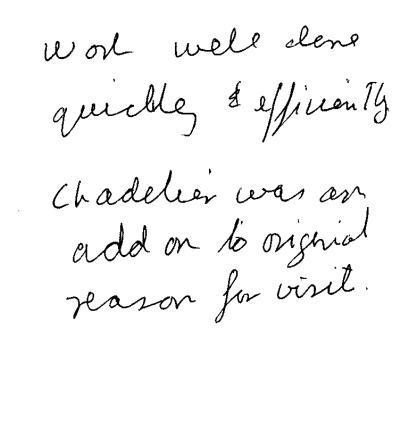 work well done
quickly & efficiently
Chadelier was an
add on to original
reason for visit.